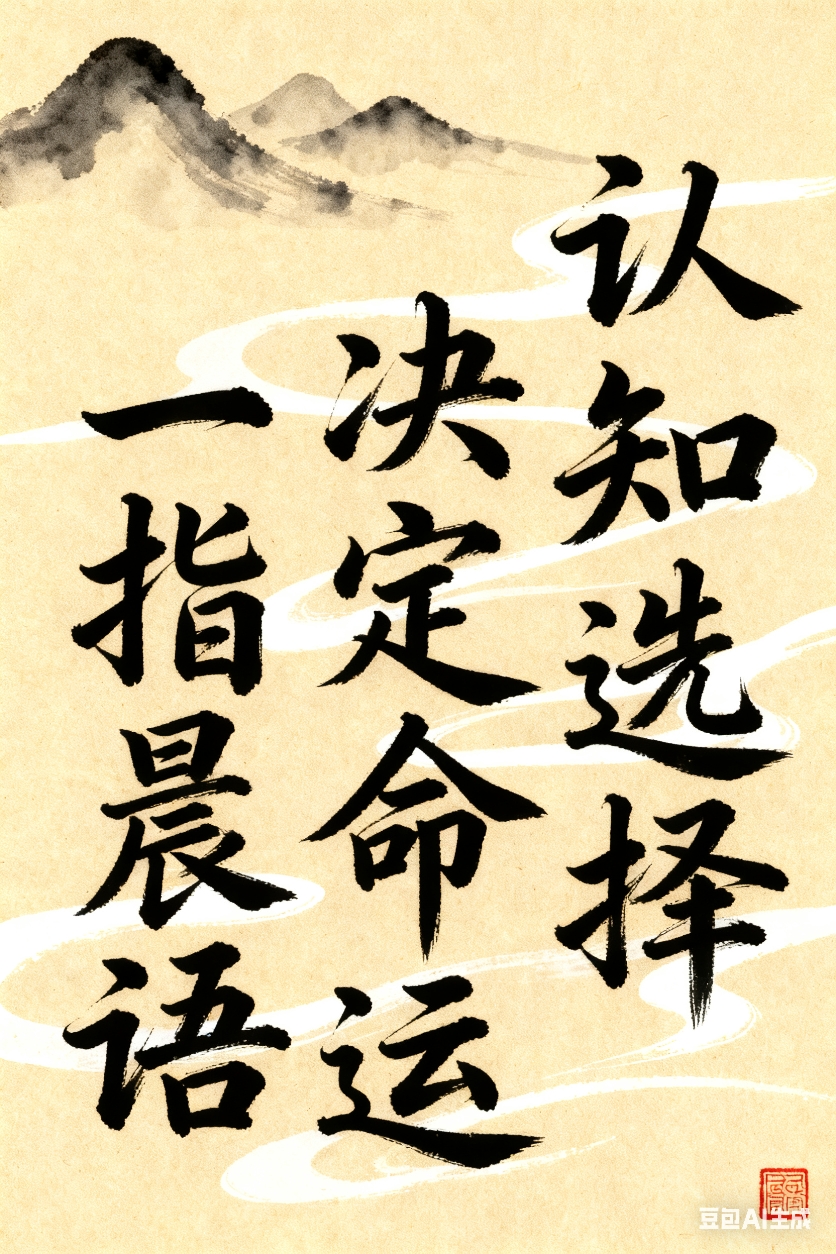 认知选择
决定命运
一指晨语
豆包AI生成